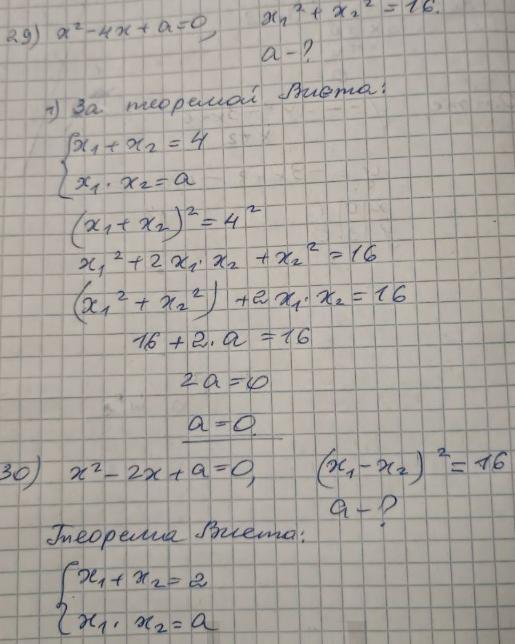 29) x² - 4x + a = 0, x₁² + x₂² = 16.
a - ?
1) За теоремой Виета:
{ x₁ + x₂ = 4
{ x₁ · x₂ = a
(x₁ + x₂)² = 4²
x₁² + 2x₁ · x₂ + x₂² = 16
(x₁² + x₂²) + 2x₁ · x₂ = 16
16 + 2 · a = 16
2a = 0
a = 0.
30) x² - 2x + a = 0, (x₁ - x₂)² = 16
a - ?
Теорема Виета:
{ x₁ + x₂ = 2
{ x₁ · x₂ = a